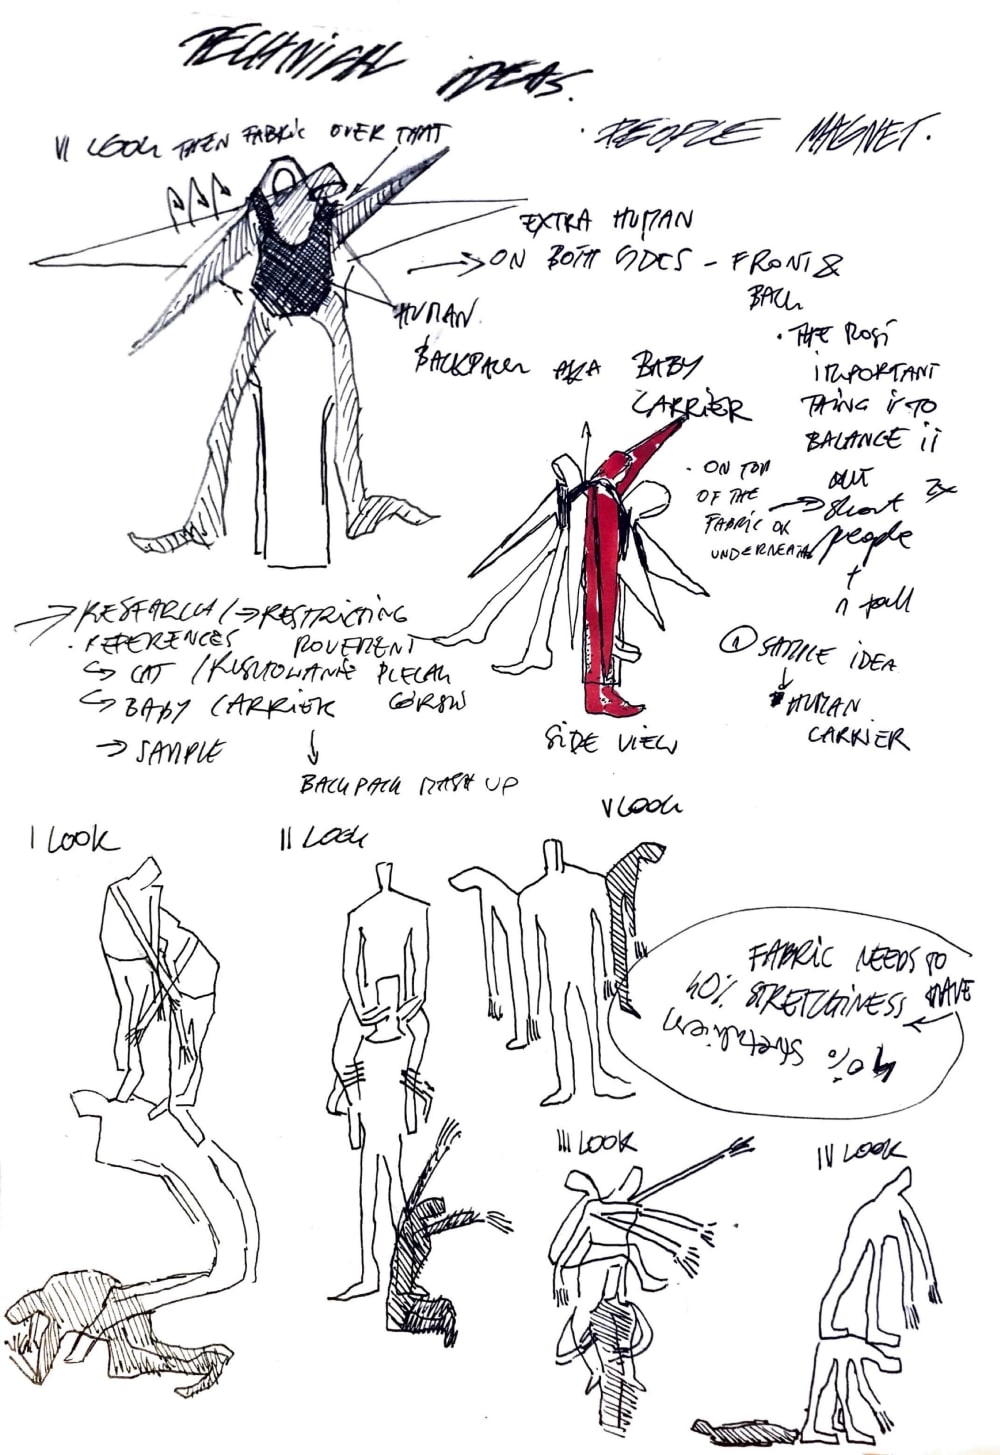 TECHNICAL IDEAS.
PEOPLE MAGNET.
VI LOOK THEN FABRIC OVER THAT
EXTRA HUMAN
ON BOTH SIDES - FRONT &
BACK
HUMAN
BACKPACK AKA BABY
CARRIER
THE MOST
IMPORTANT
THING IS TO
BALANCE IT
OUT
short 2x
people
+
n tall
ON TOP
OF THE
FABRIC OR
UNDERNEATH
① SAMPLE IDEA
HUMAN
CARRIER
SIDE VIEW
RESEARCH / → RESTRICTING
REFERENCES MOVEMENT
CAT / PLECAK
BABY CARRIER GORSU
→ SAMPLE
BACKPACK MASH UP
I LOOK
II LOOK
V LOOK
FABRIC NEEDS TO
40% STRETCHINESS HAVE
40% stretchiern
III LOOK
IV LOOK